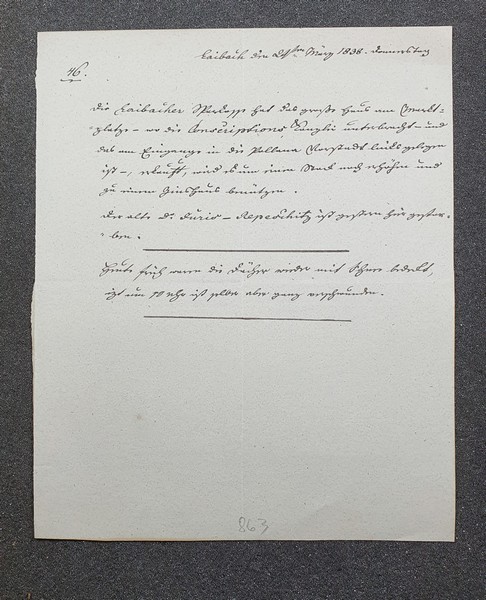 Laibach den März 1838. Donnerstag
46.
Die Laibacher Sparkasse hat das große Haus am Markt-
platze – wo die Conscriptions Kanzlei unterbracht – und
das am Eingange in die Pollana Vorstadt links gelegen
ist –, erkauft, wird es um einen Stock noch erhöhen und
zu einem Zinshaus benützen.
Der alte Dr. – Repeschitz ist gestern hier gestor-
ben.
Heute früh waren die Dächer wieder mit Schnee bedeckt,
izt um 10 Uhr ist selber aber ganz verschwunden.
863